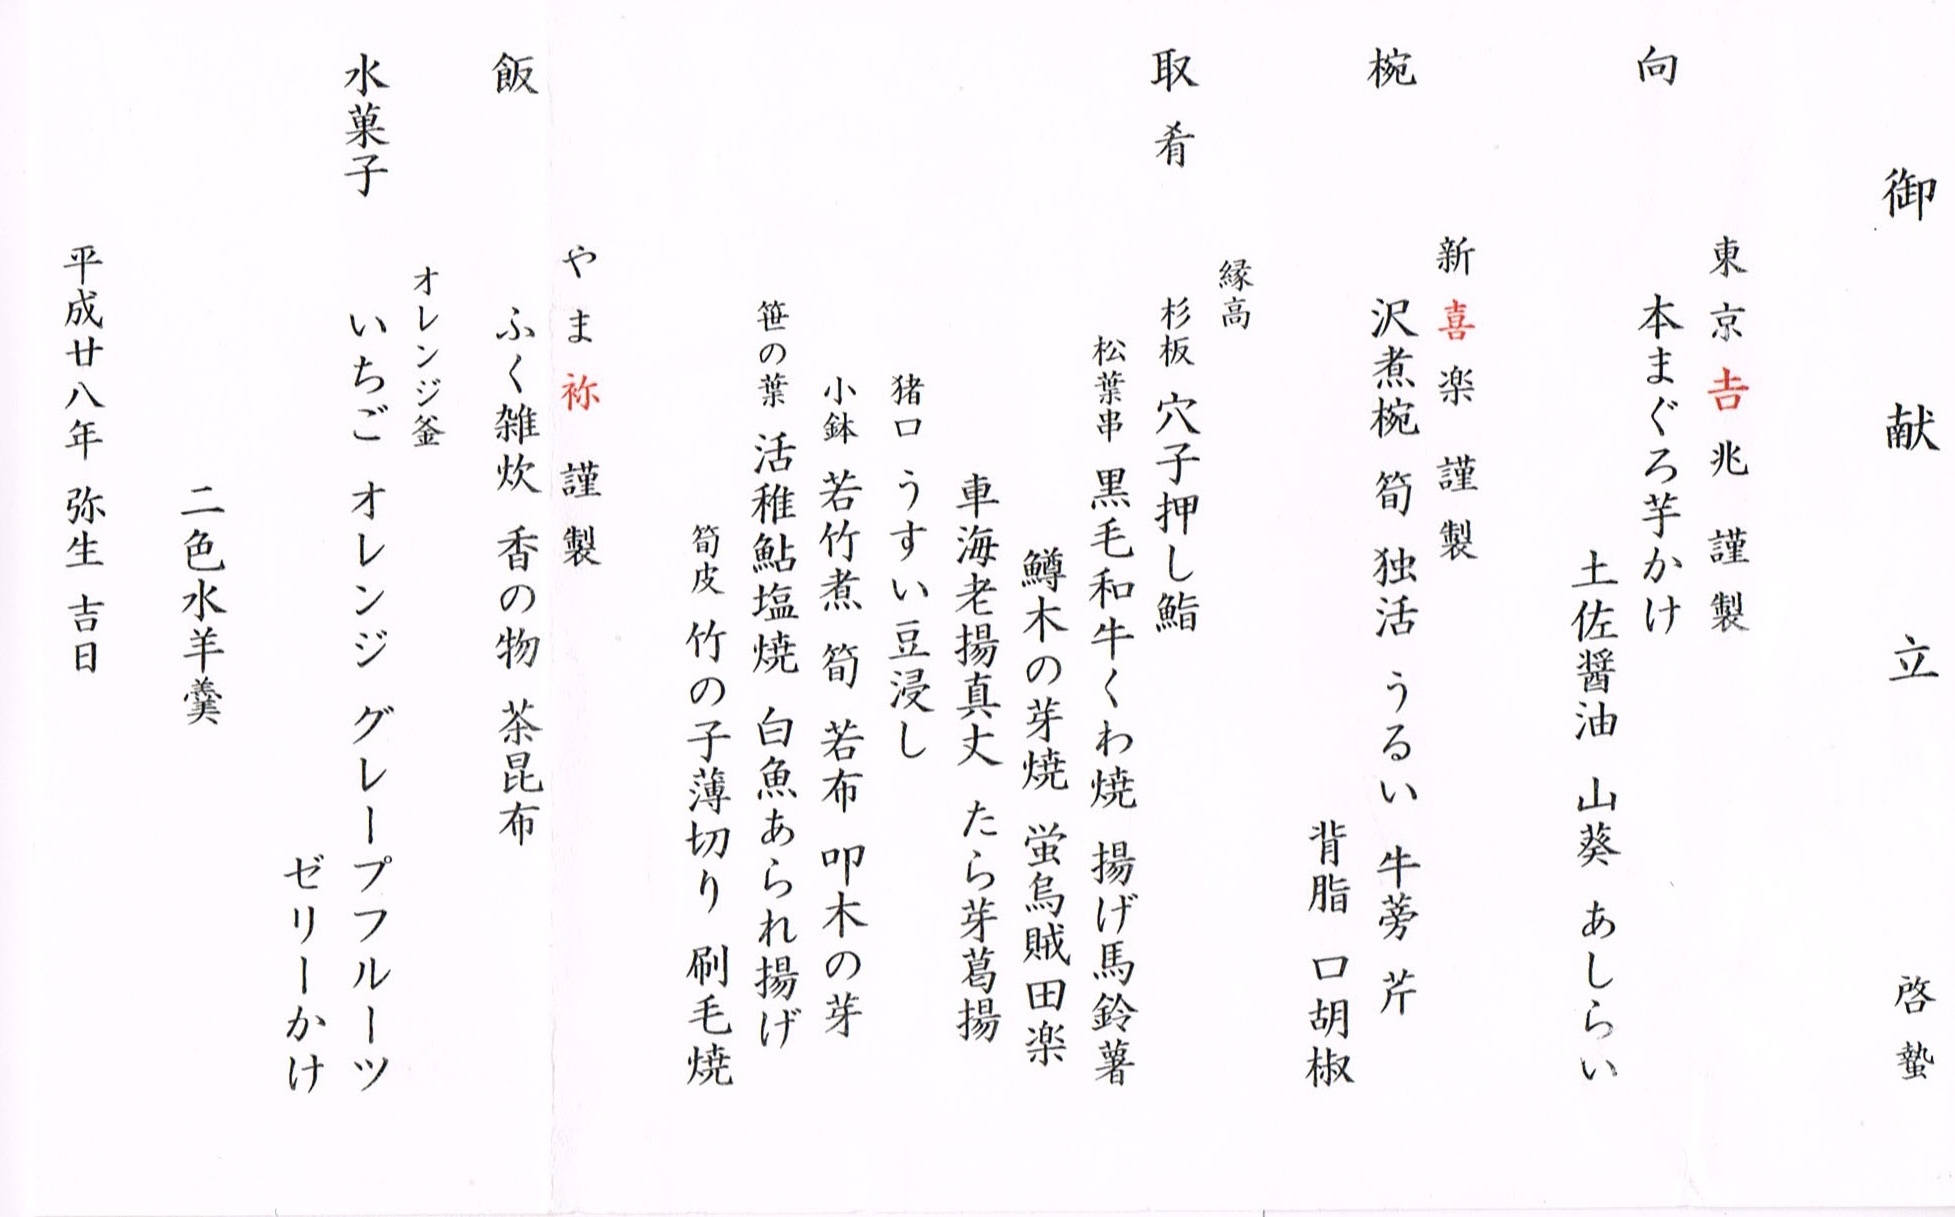 御献立 啓蟄
東京𠮷兆 謹製
向 本まぐろ芋かけ
土佐醤油 山葵 あしらい
新喜楽 謹製
椀 沢煮椀 筍 独活 うるい 牛蒡 芹
背脂 口胡椒
縁高
取肴 杉板 穴子押し鮨
松葉串 黒毛和牛くわ焼 揚げ馬鈴薯
鱒木の芽焼 蛍烏賊田楽
車海老揚真丈 たら芽葛揚
猪口 うすい豆浸し
小鉢 若竹煮 筍 若布 叩木の芽
笹の葉 活稚鮎塩焼 白魚あられ揚げ
筍皮 竹の子薄切り 刷毛焼
やま祢 謹製
飯 ふく雑炊 香の物 茶昆布
オレンジ釜
水菓子 いちご オレンジ グレープフルーツ
ゼリーかけ
二色水羊羹
平成廿八年 弥生 吉日